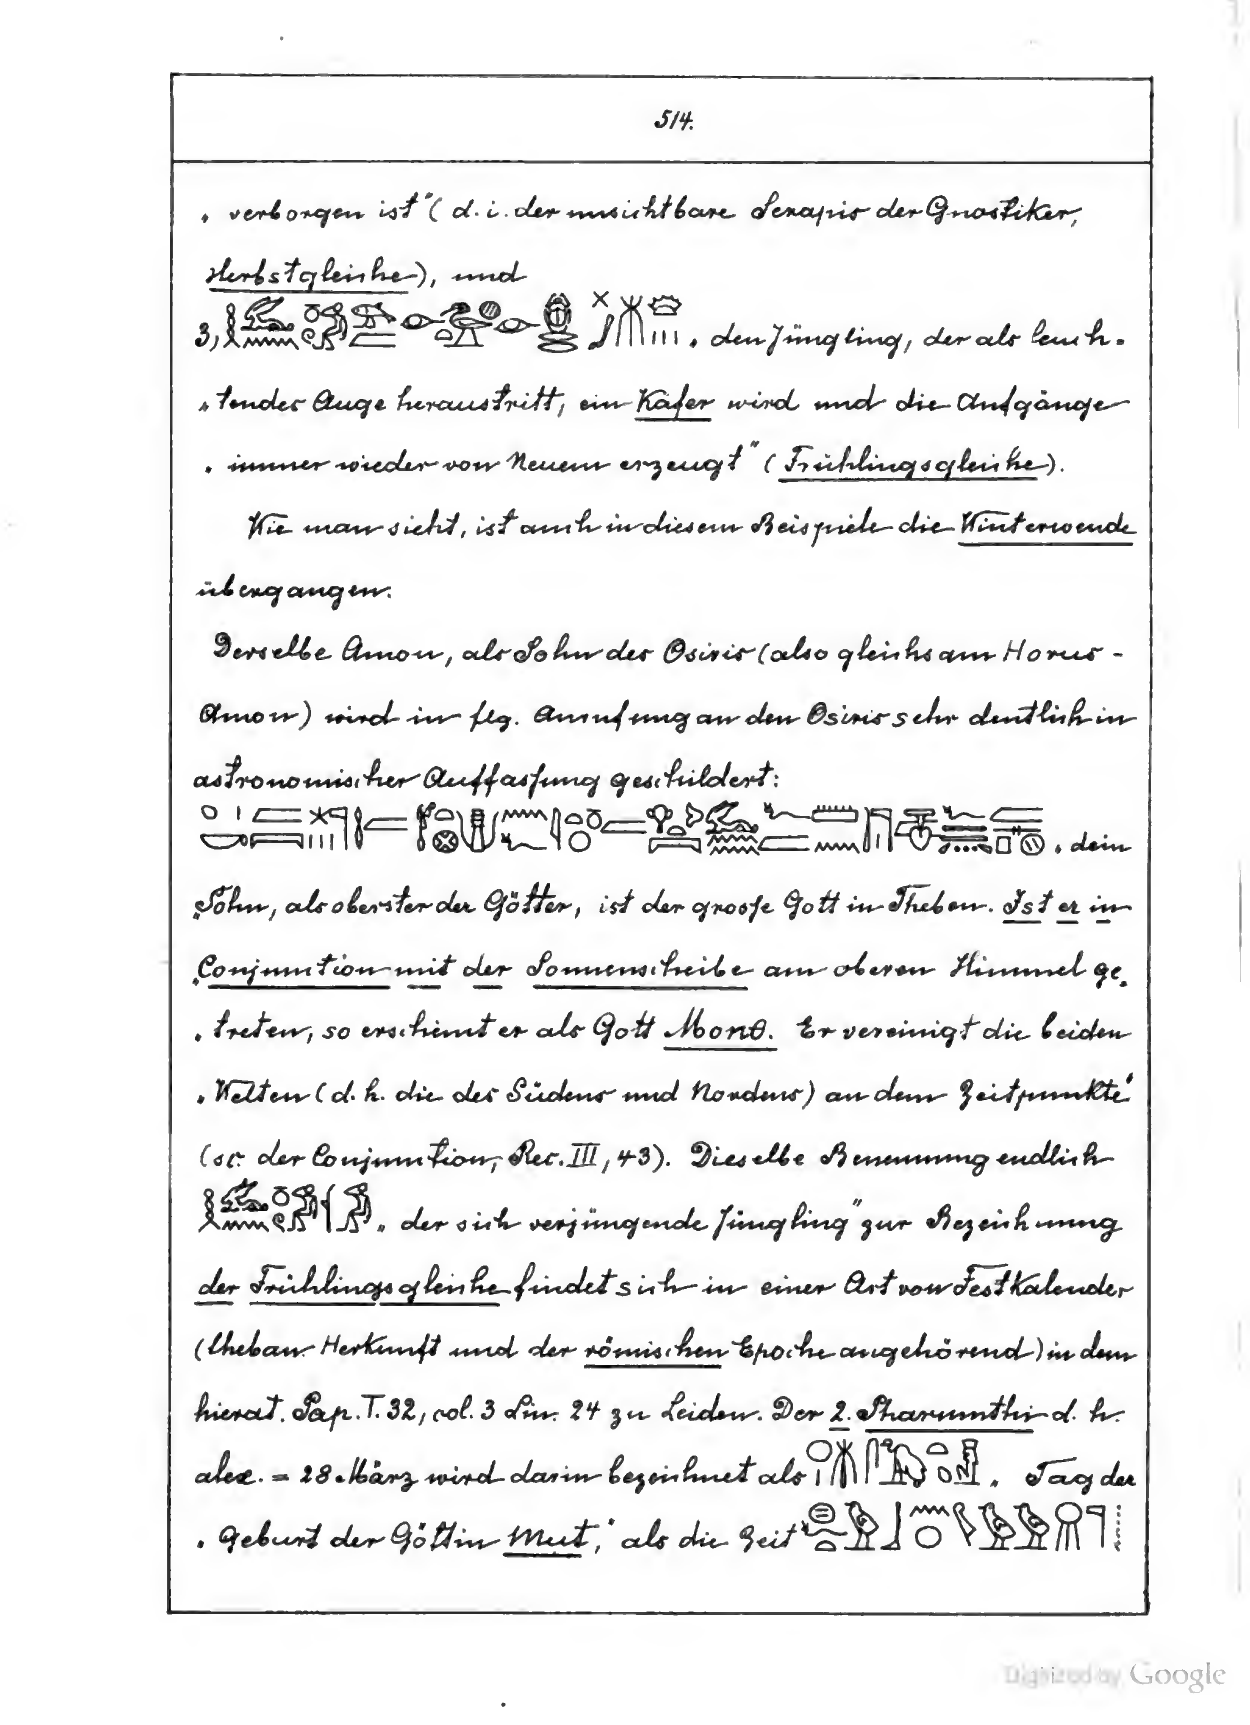 514.
„ verborgen ist" (d. i. der unsichtbare Serapis der Gnostiker,
Herbstgleiche), und
3, „ den Jüngling, der als leuch-
„ tendes Auge heraustritt, ein Käfer wird und die Aufgänge
„ immer wieder von Neuem erzeugt" (Frühlingsgleiche).
Wie man sieht, ist auch in diesem Beispiele die Winterwende
übergangen.
Derselbe Amon, als Sohn des Osiris (also gleichsam Horus-
Amon) wird in flg. Anrufung an den Osiris sehr deutlich in
astronomischer Auffassung geschildert:
„ dein
„ Sohn, als oberster der Götter, ist der grosse Gott in Theben. Ist er in
„ Conjunction mit der Sonnenscheibe am oberen Himmel ge-
„ treten, so erscheint er als Gott Monθ. Er vereinigt die beiden
„ Welten (d. h. die des Südens und Nordens) an dem Zeitpunkte"
(sc. der Conjunction, Rec. III, 43). Dieselbe Benennung endlich
„ der sich verjüngende Jüngling" zur Bezeichnung
der Frühlingsgleiche findet sich in einer Art von Festkalender
(theban. Herkunft und der römischen Epoche angehörend) in dem
hierat. Pap. T. 32, col. 3 Lin. 24 zu Leiden. Der 2. Pharmuthi d. h.
alex. = 28. März wird darin bezeichnet als „ Tag der
„ Geburt der Göttin Mut," als die Zeit
Digitized by Google